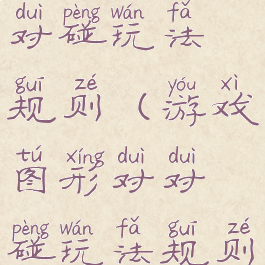 duì pèng wán fǎ
对碰玩法
guī zé yóu xì
规则（游戏
tú xíng duì duì
图形对对
pèng wán fǎ guī zé
碰玩法规则